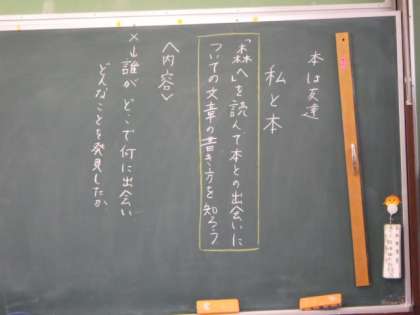 本は友達
私と本
「森へ」を読んで本との出会いに
ついての文章の書き方を知ろう
〈内容〉
×↓誰がどこで何に出会い
どんなことを発見したか